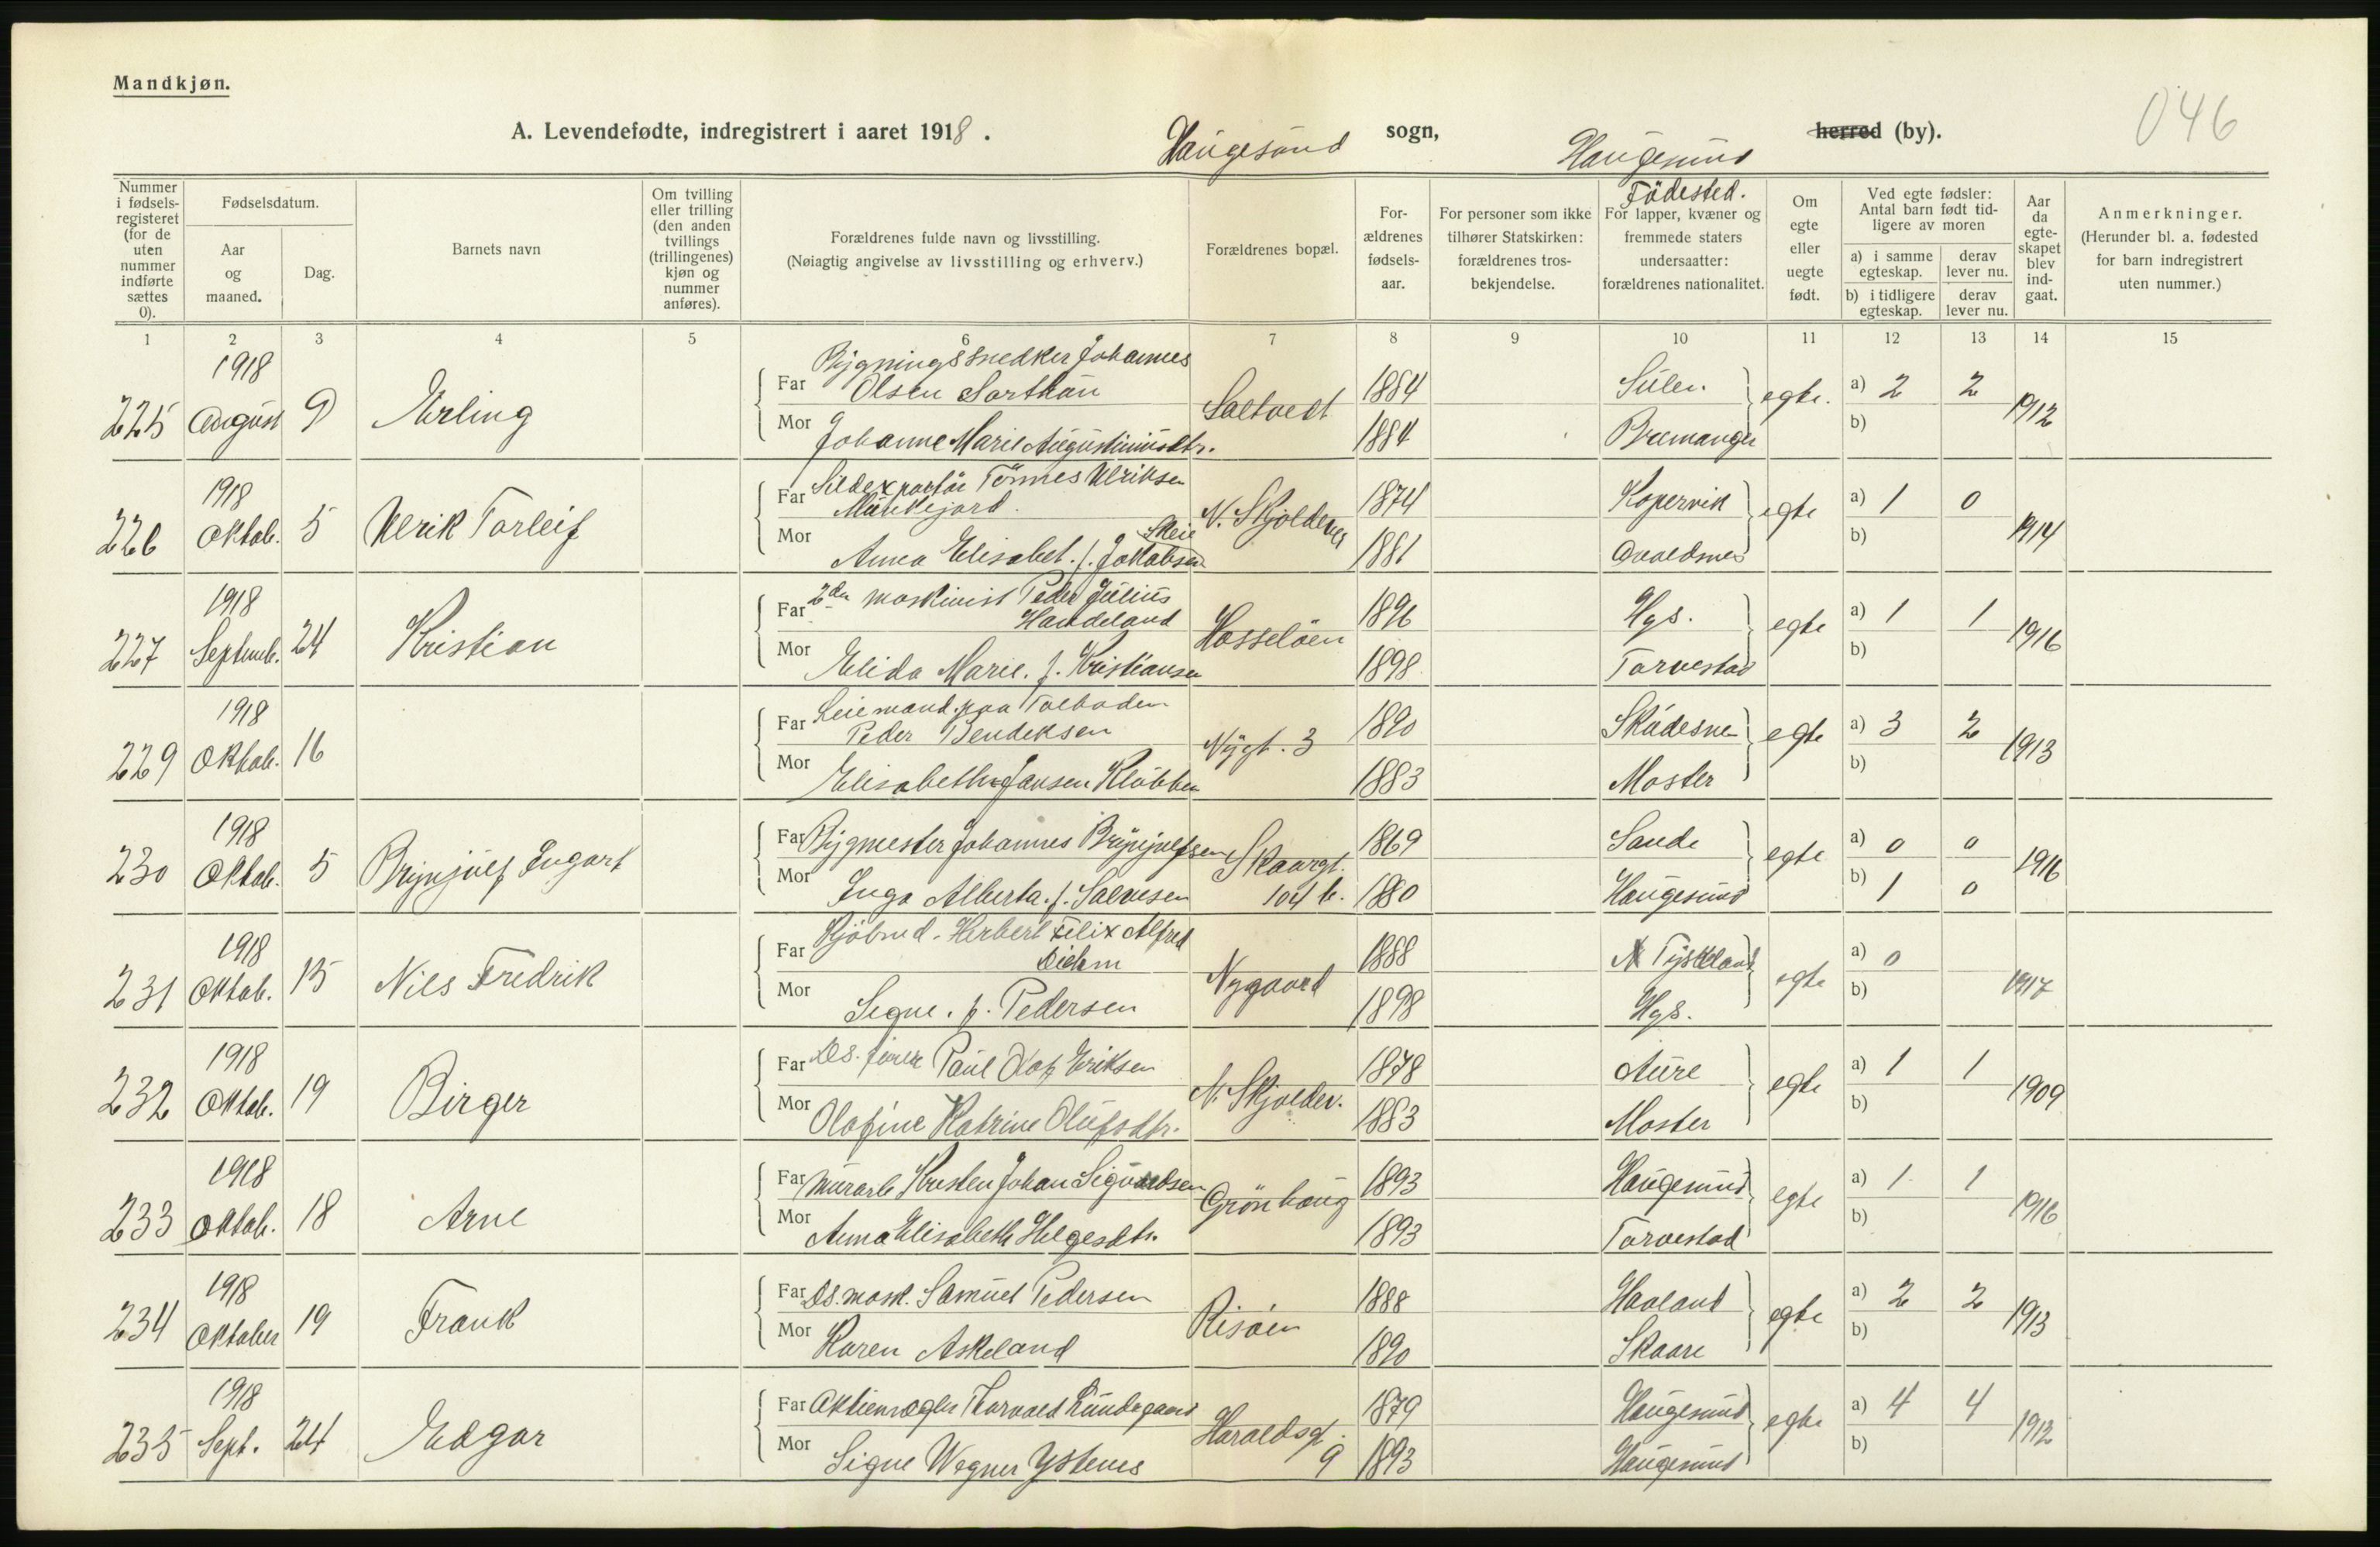 Mandkjøn.
046
A. Levendefødte, indregistrert i aaret 1918. Haugesund sogn, Haugesund herred (by).
Nummer i fødsels-registeret (for de uten nummer indførte sættes 0).
Fødselsdatum.
Aar og maaned.
Dag.
Barnets navn
Om tvilling eller trilling (den anden tvillings (trillingenes) kjøn og nummer anføres).
Forældrenes fulde navn og livsstilling.
(Nøiagtig angivelse av livsstilling og erhverv.)
Forældrenes bopæl.
For-ældrenes fødsels-aar.
For personer som ikke tilhører Statskirken: forældrenes tros-bekjendelse.
Födested.
For lapper, kvæner og fremmede staters undersaatter: forældrenes nationalitet.
Om egte eller uegte født.
Ved egte fødsler: Antal barn født tid-ligere av moren
a) i samme egteskap.
derav lever nu.
b) i tidligere egteskap.
derav lever nu.
Aar da egte-skapet blev ind-gaat.
Anmerkninger.
(Herunder bl. a. fødested for barn indregistrert uten nummer.)
1 2 3 4 5 6 7 8 9 10 11 12 13 14 15
225 1918 August 9 Erling
Far Bygningssnedker Johannes Olsen Sorthån 1884 Sulen
Mor Johanne Marie Augustinusdtr. 1884 Bremanger
Saltveit egte. a) 2 2 b) 1912
226 1918 Oktob. 5 Ulrik Torleif
Far Sildexportör Tönnes Ulriksen Munkejord. 1874 Kopervik
Mor Anna Elisabet. f. Jakobsen Skeie 1881 Avaldsnes
N. Skjoldeves egte a) 1 0 b) 1914
227 1918 Septemb. 24 Kristian
Far 2den maskinist Peder Julius Handeland 1896 Hgs.
Mor Elida Marie. f. Kristiansen 1898 Torvestad
Hasselöen egte a) 1 1 b) 1916
229 1918 Oktob. 16
Far Leiemand paa Tolboden Peder Bendeksen 1890 Skudesnes
Mor Elisabeth Jansen Klubben 1883 Moster
Nygt. 3 egte a) 3 2 b) 1913
230 1918 Oktob. 5 Brynjulf Ingart
Far Bygmester Johannes Brynjulfsen 1869 Sande
Mor Inga Alberta. f. Salvesen 1880 Haugesund
Skaargt. 104 b. egte a) 0 0 b) 1 0 1916
231 1918 Oktob. 15 Nils Fredrik
Far Kjöbmd. Herbert Felix Alfred Diehm 1888 Tyskland
Mor Signe. f. Pedersen 1898 Hgs.
Nygaard egte a) 0 b) 1917
232 1918 Oktob. 19 Birger
Far Ds. förer Paul Olaf Eriksen 1878 Aure
Mor Olofine Katrine Olufsdtr. 1883 Moster
N. Skjoldev. egte a) 1 1 b) 1909
233 1918 Oktob. 18 Arne
Far Murarb Kristen Johan Sigurdsen 1893 Haugesund
Mor Anna Elisabeth Helgesdtr. 1893 Torvestad
Grönhaug egte a) 1 1 b) 1916
234 1918 Oktober 19 Frank
Far Ds. mask. Samuel Pedersen 1888 Haaland
Mor Karen Askeland 1890 Skaare
Risöen egte a) 2 2 b) 1913
235 1918 Sept. 24 Edgar
Far Aktiemægler Thorvald Lundegaard 1879 Haugesund
Mor Signe Wegner Ystenes 1893 Haugesund
Haraldsgt. 9 egte a) 4 4 b) 1912